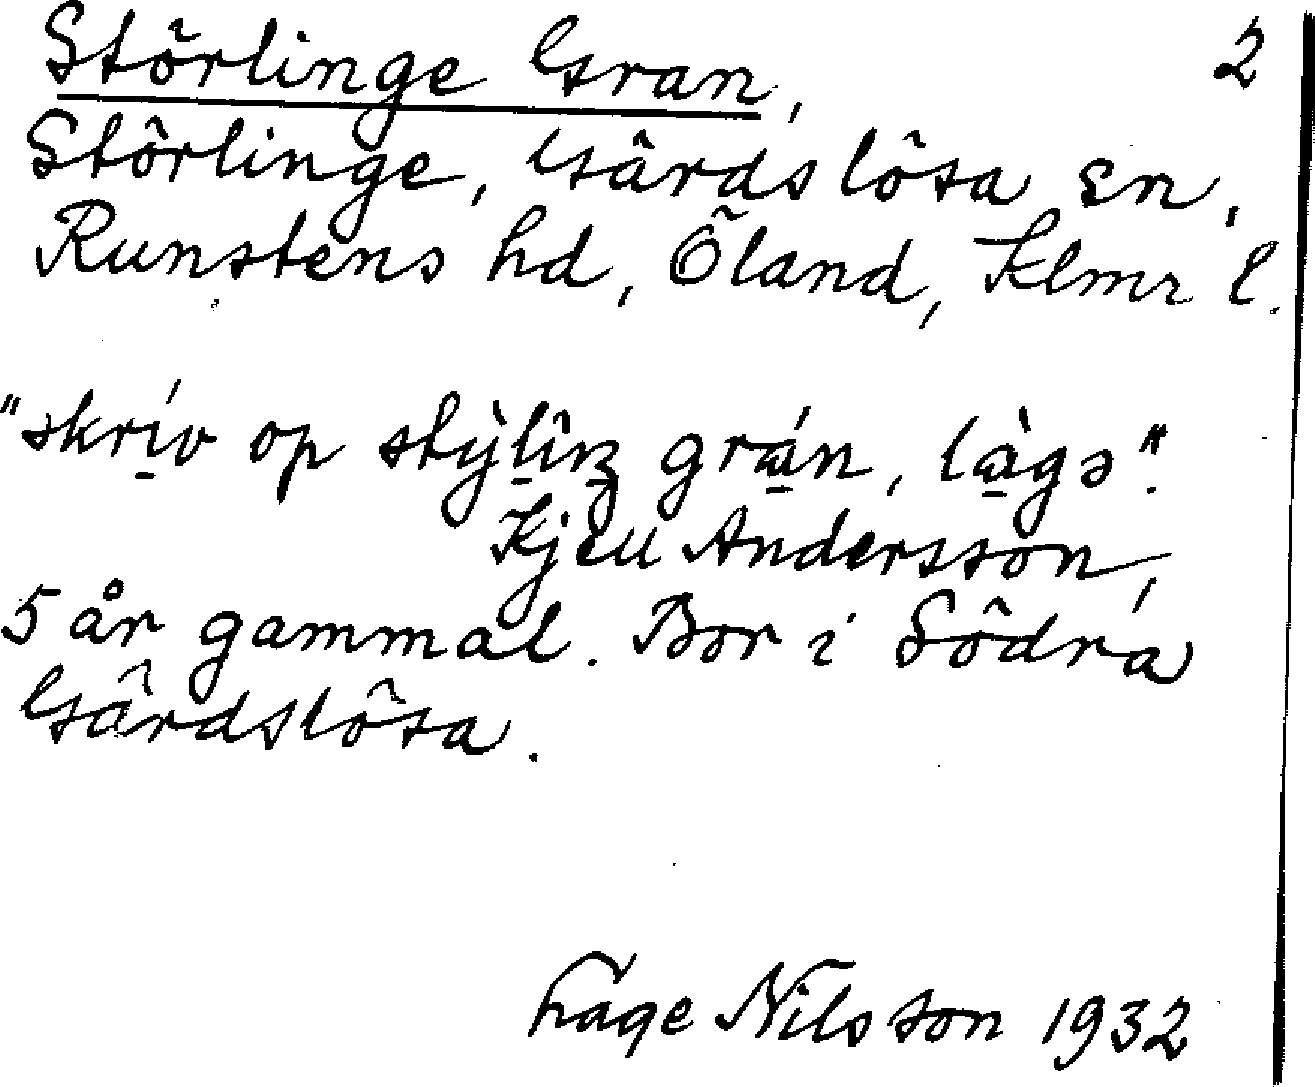 Störlinge Gran, 2
Störlinge, Gärdslösa sn,
Runstens hd, Öland, Klmr l.
"skrív op
grán, làgə".
Kjell Andersson,
5 år gammal. Bor i Södra
Gärdslösa.
Hage Nilsson 1932